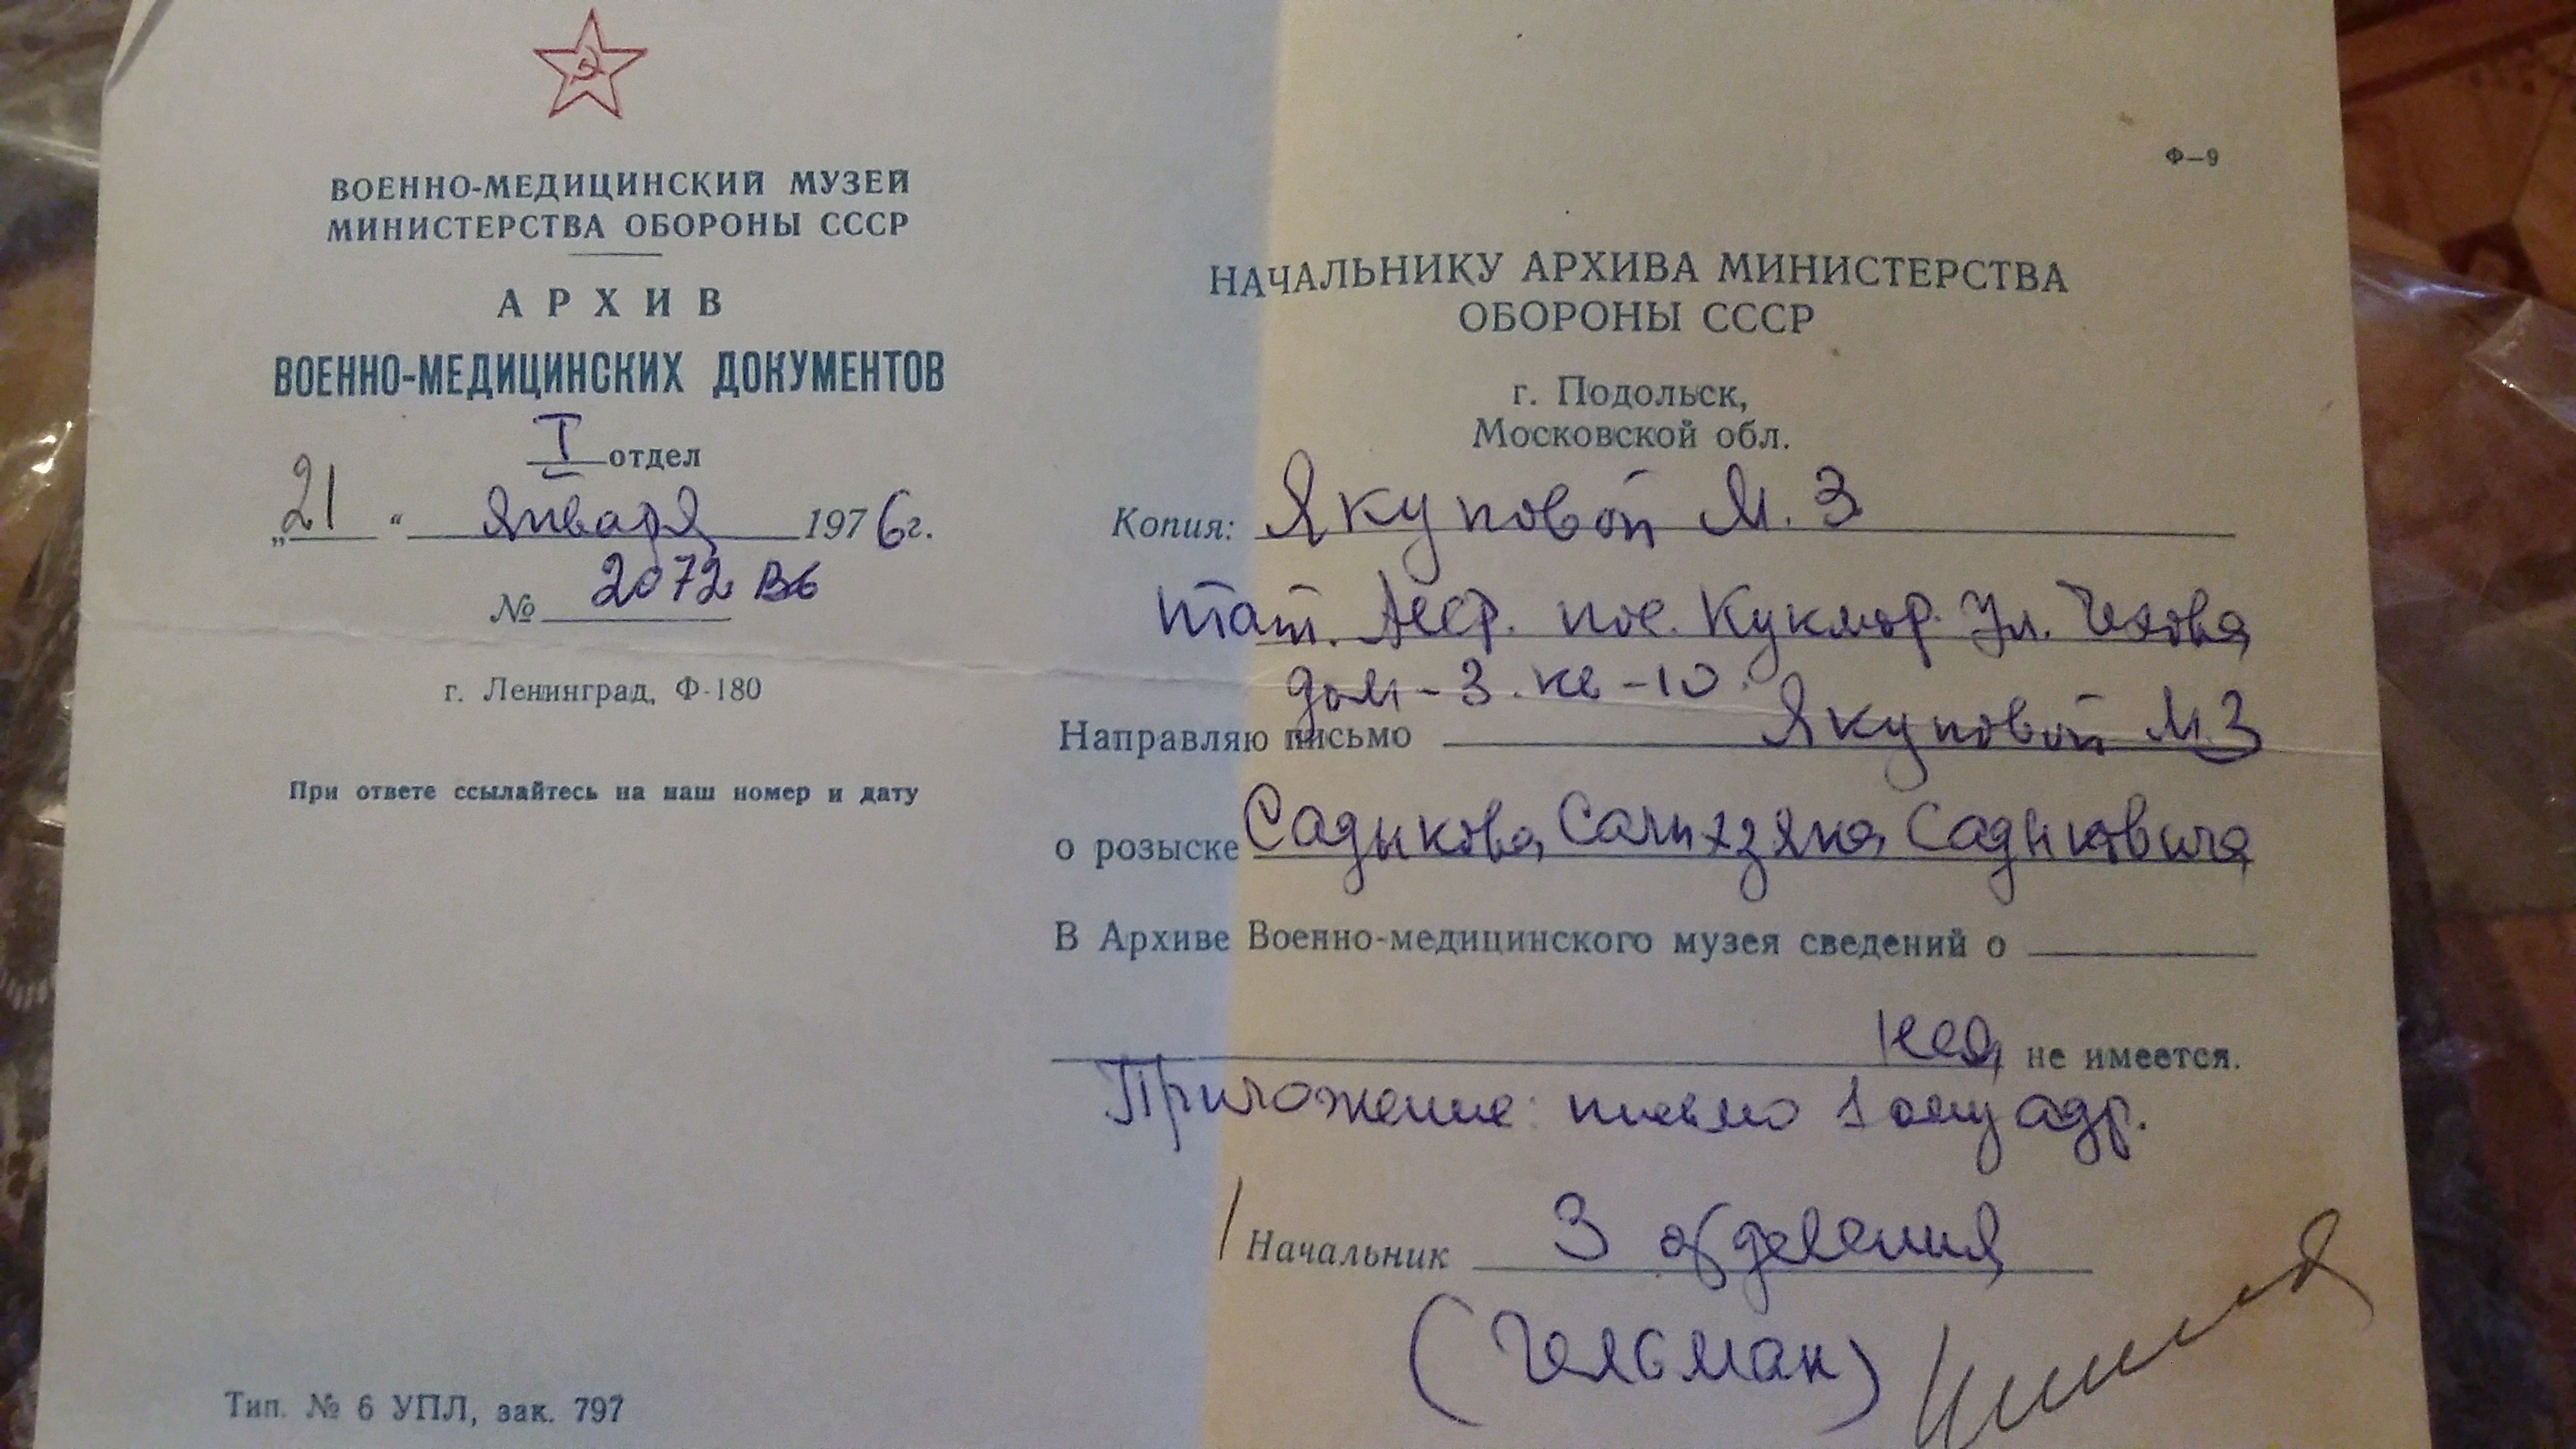 ВОЕННО-МЕДИЦИНСКИЙ МУЗЕЙ
МИНИСТЕРСТВА ОБОРОНЫ СССР
АРХИВ
ВОЕННО-МЕДИЦИНСКИХ ДОКУМЕНТОВ
I отдел
„21“ января 1976г.
№ 2072 В6
г. Ленинград, Ф-180
При ответе ссылайтесь на наш номер и дату
Тип. № 6 УПЛ, зак. 797
Ф—9
НАЧАЛЬНИКУ АРХИВА МИНИСТЕРСТВА
ОБОРОНЫ СССР
г. Подольск,
Московской обл.
Копия: Якуповой М. З
тат. Асср. пос. Кукмор. Ул. Чехова
дом - 3. кв - 10.
Направляю письмо Якуповой М.З
о розыске Садыкова Салихзяна Садыковича
В Архиве Военно-медицинского музея сведений о
нем не имеется.
Приложение: письмо 1 ому адр.
Начальник 3 отделения
(Гельман)